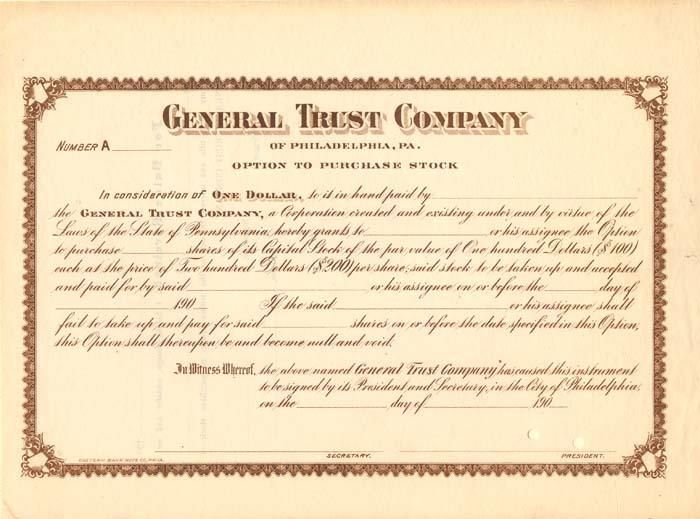 GENERAL TRUST COMPANY
OF PHILADELPHIA, PA.
NUMBER A
OPTION TO PURCHASE STOCK
In consideration of ONE DOLLAR, to it in hand paid by
the GENERAL TRUST COMPANY, a Corporation created and existing under and by virtue of the
Laws of the State of Pennsylvania, hereby grants to or his assignee the Option
to purchase shares of its Capital Stock of the par value of One hundred Dollars ($100)
each at the price of Two hundred Dollars ($200) per share; said stock to be taken up and accepted
and paid for by said or his assignee on or before the day of
190 If the said or his assignee shall
fail to take up and pay for said shares on or before the date specified in this Option,
this Option shall thereupon be and become null and void.
In Witness Whereof, the above named General Trust Company has caused this instrument
to be signed by its President and Secretary, in the City of Philadelphia,
on the day of 190
SECRETARY. PRESIDENT.
EASTERN BANK NOTE CO. PHILA.